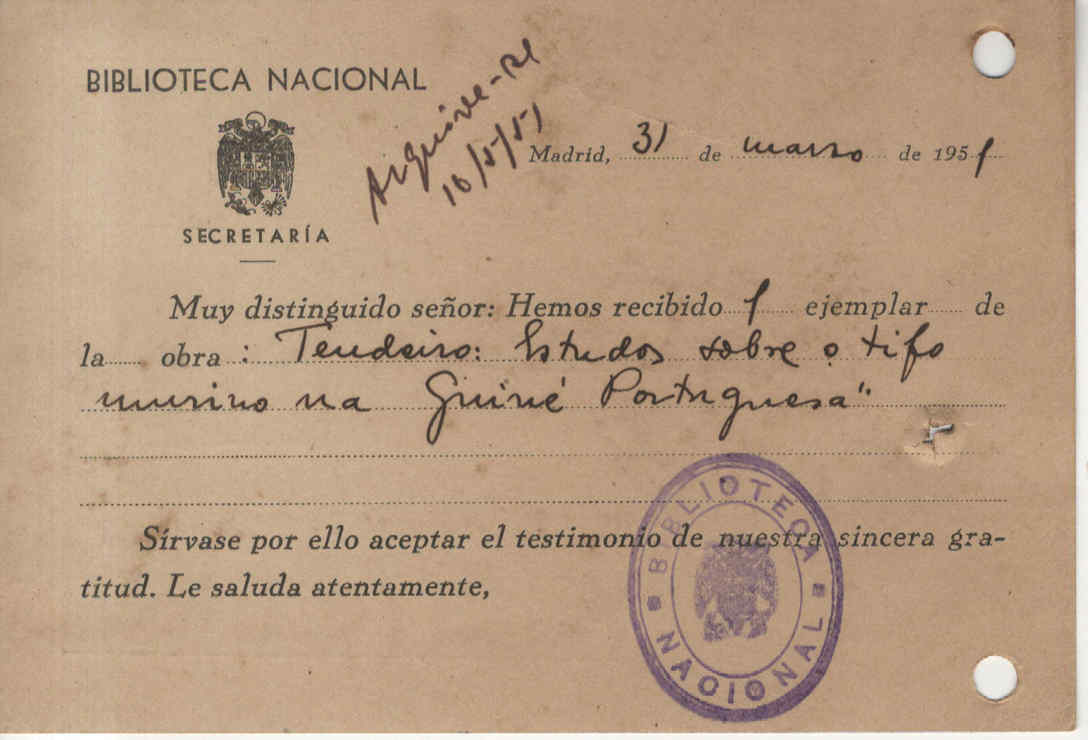 BIBLIOTECA NACIONAL
SECRETARÍA
Arquive-se
16/5/51
Madrid, 31 de marzo de 1951
Muy distinguido señor: Hemos recibido 1 ejemplar de
la obra : Tendeiro: Estudos sobre o tifo
murino na Guiné Portuguesa"
Sírvase por ello aceptar el testimonio de nuestra sincera gra-
titud. Le saluda atentamente,
BIBLIOTECA NACIONAL